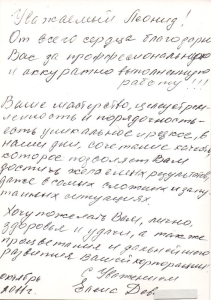 Уважаемый Леонид!
От всего сердца благодарю
Вас за профессионально
и аккуратно выполненную
работу!!!
Ваше мастерство, целеустрем-
ленность и порядочность -
есть уникальное и редкое, в
наши дни, сочетание качеств,
которое позволяет Вам
достичь желаемых результатов,
даже в самых сложных и запу-
танных ситуациях.
Хочу пожелать Вам, лично,
здоровья и удачи, а также
процветания и дальнейшего
развития Вашей корпорации
С Уважением
октябрь
2011г.